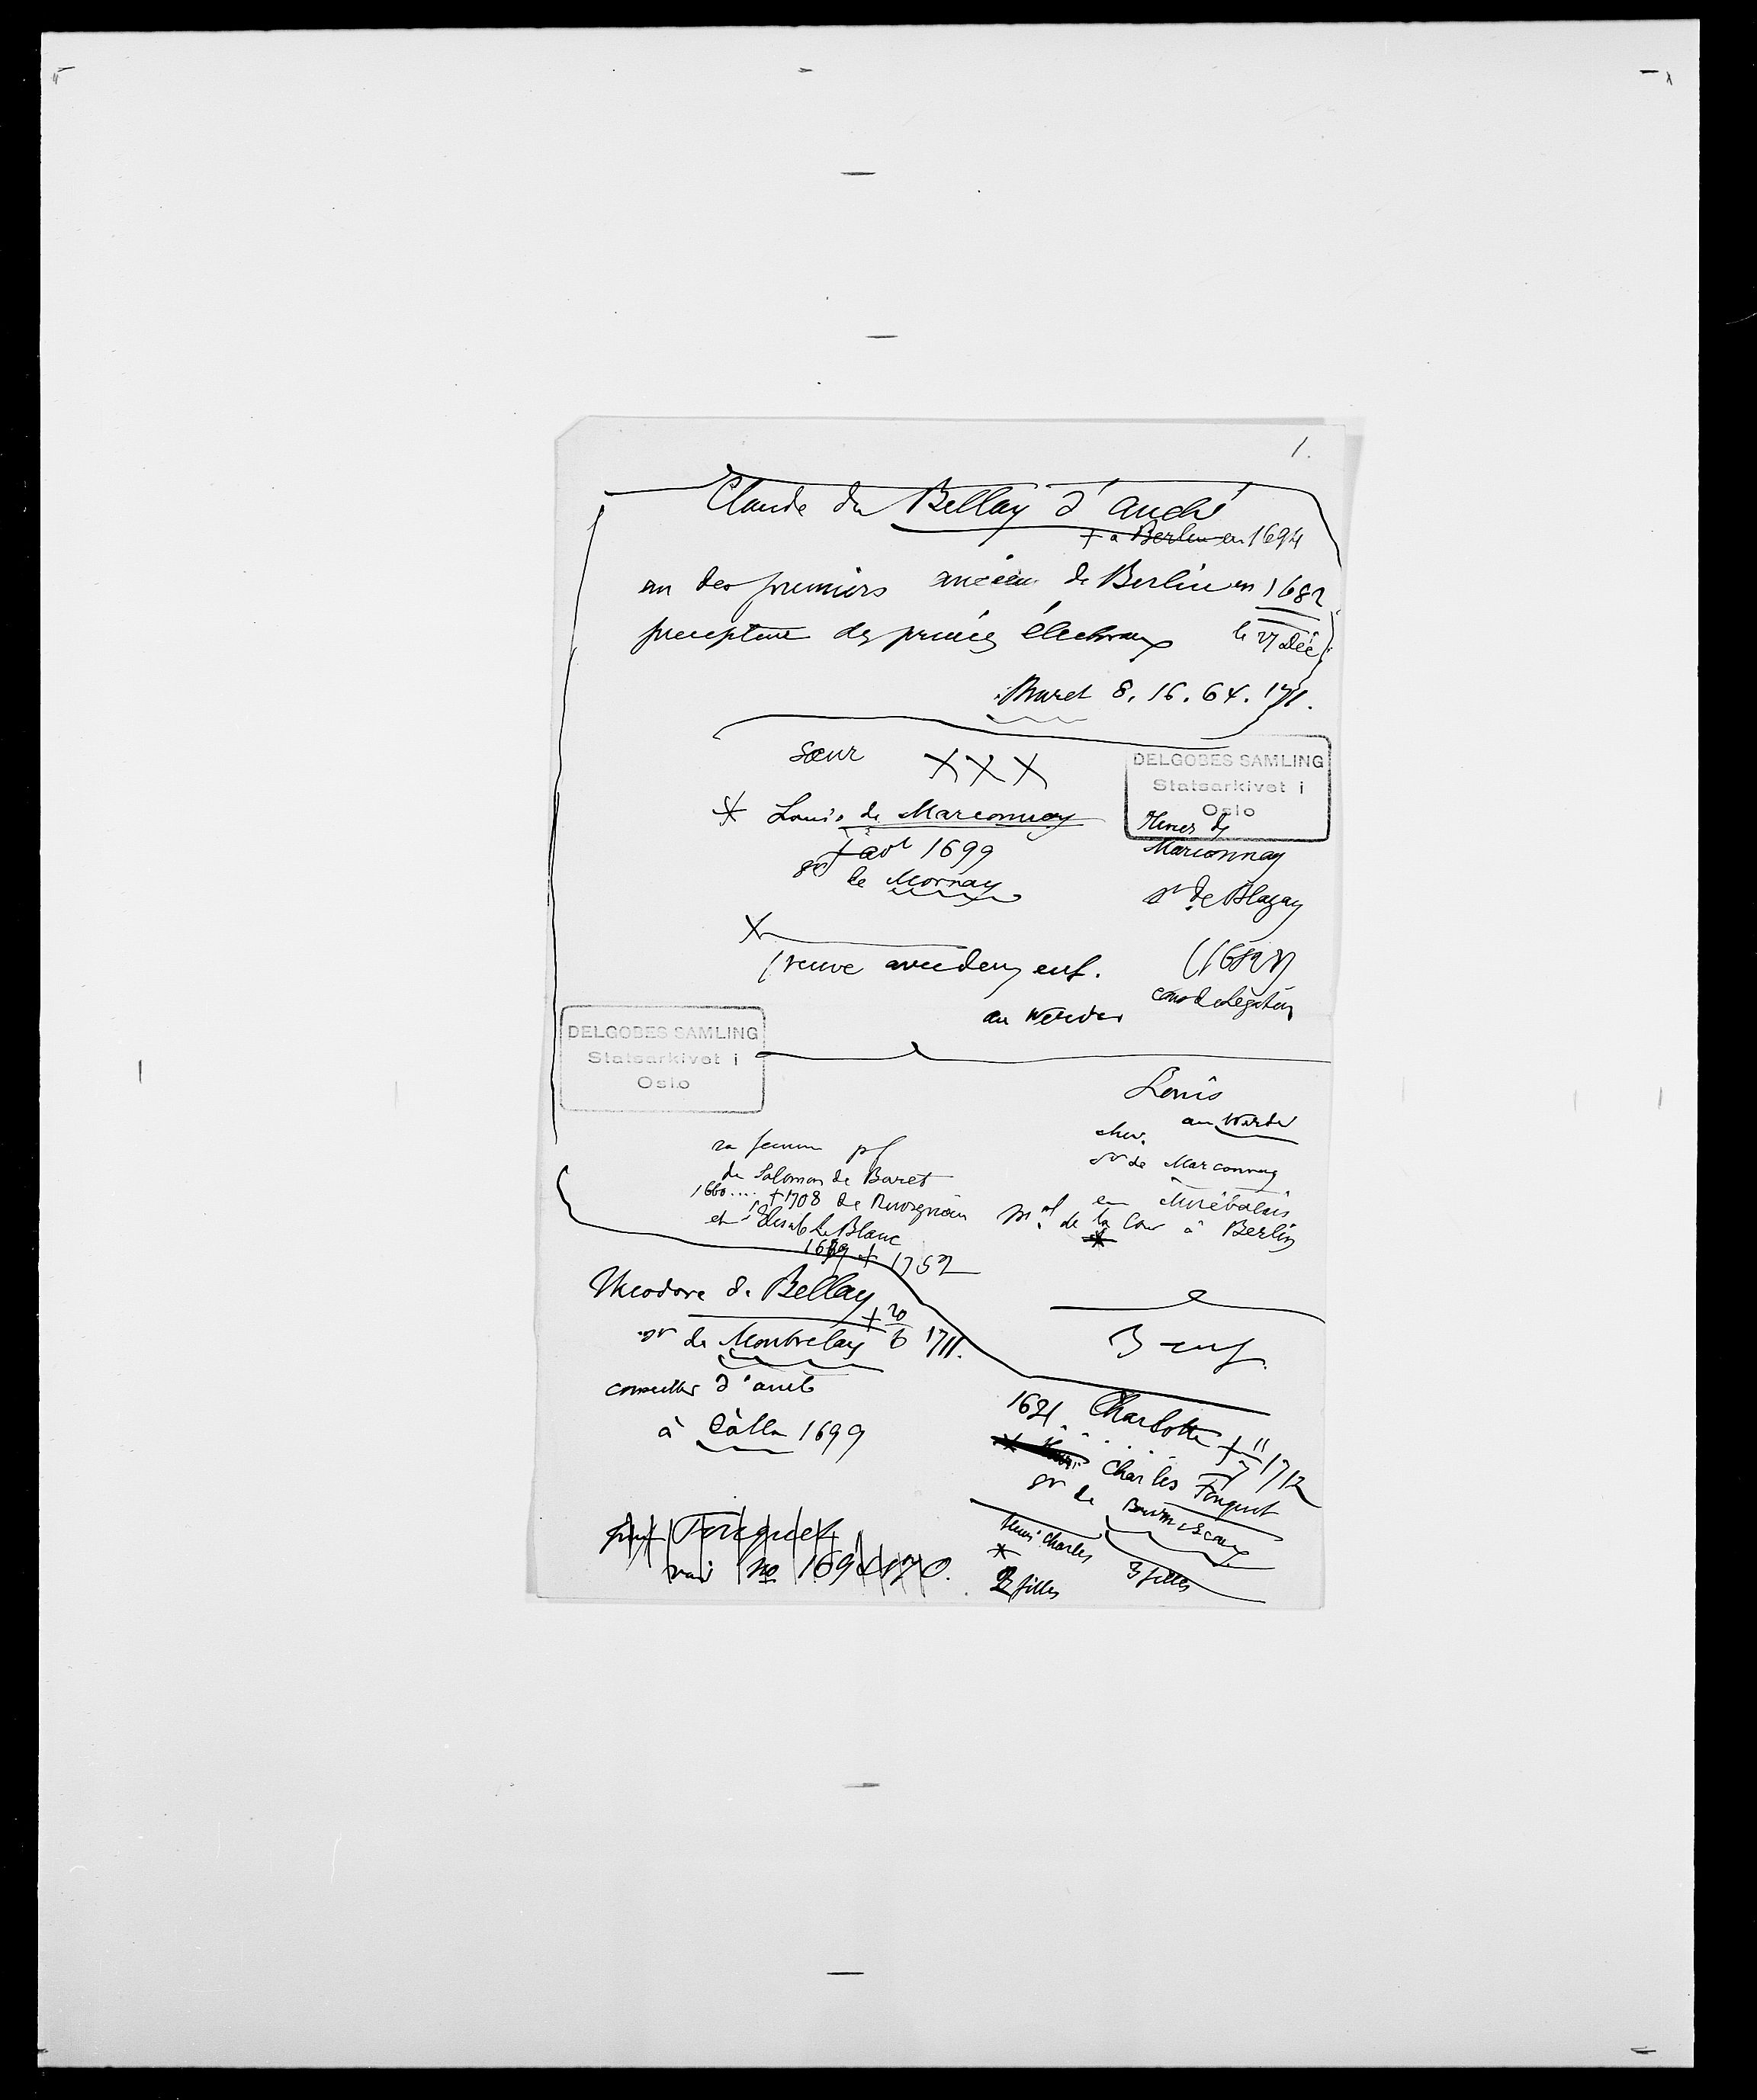 1.
Claude du Bellay d'Anché
+ à Berlin en 1694
un des premiers anciens de Berlin en 1682
precepteur des princes électoraux le 27 Déc
Muret 8. 16. 64. 171.
sœur XXX
DELGOBES SAMLING
Statsarkivet i
Oslo
* Louis de Marconnay
+ avt 1699
gr de Mornay
Marconnay
sr de Blazay
X
(veuve avec deux enf.
au Werder
cons de Légation
DELGOBES SAMLING
Statsarkivet i
Oslo
Louis
au Werder
chev.
sr de Marconnay
en Mirebalais
de la Cour à Berlin
*
sa femme
de Salomon de Baret
1660.... +1708
et Elisab Le Blanc
+ 1752
Theodore de Bellay
+ 20/6 1711.
sr de Montrelay
conseiller d'amb
à Cölln 1699
3 enf.
Charlotte + 11/7 1712
Charles Fouquet
sr de
Henri Charles
*
2 filles
3 filles
Fouquet